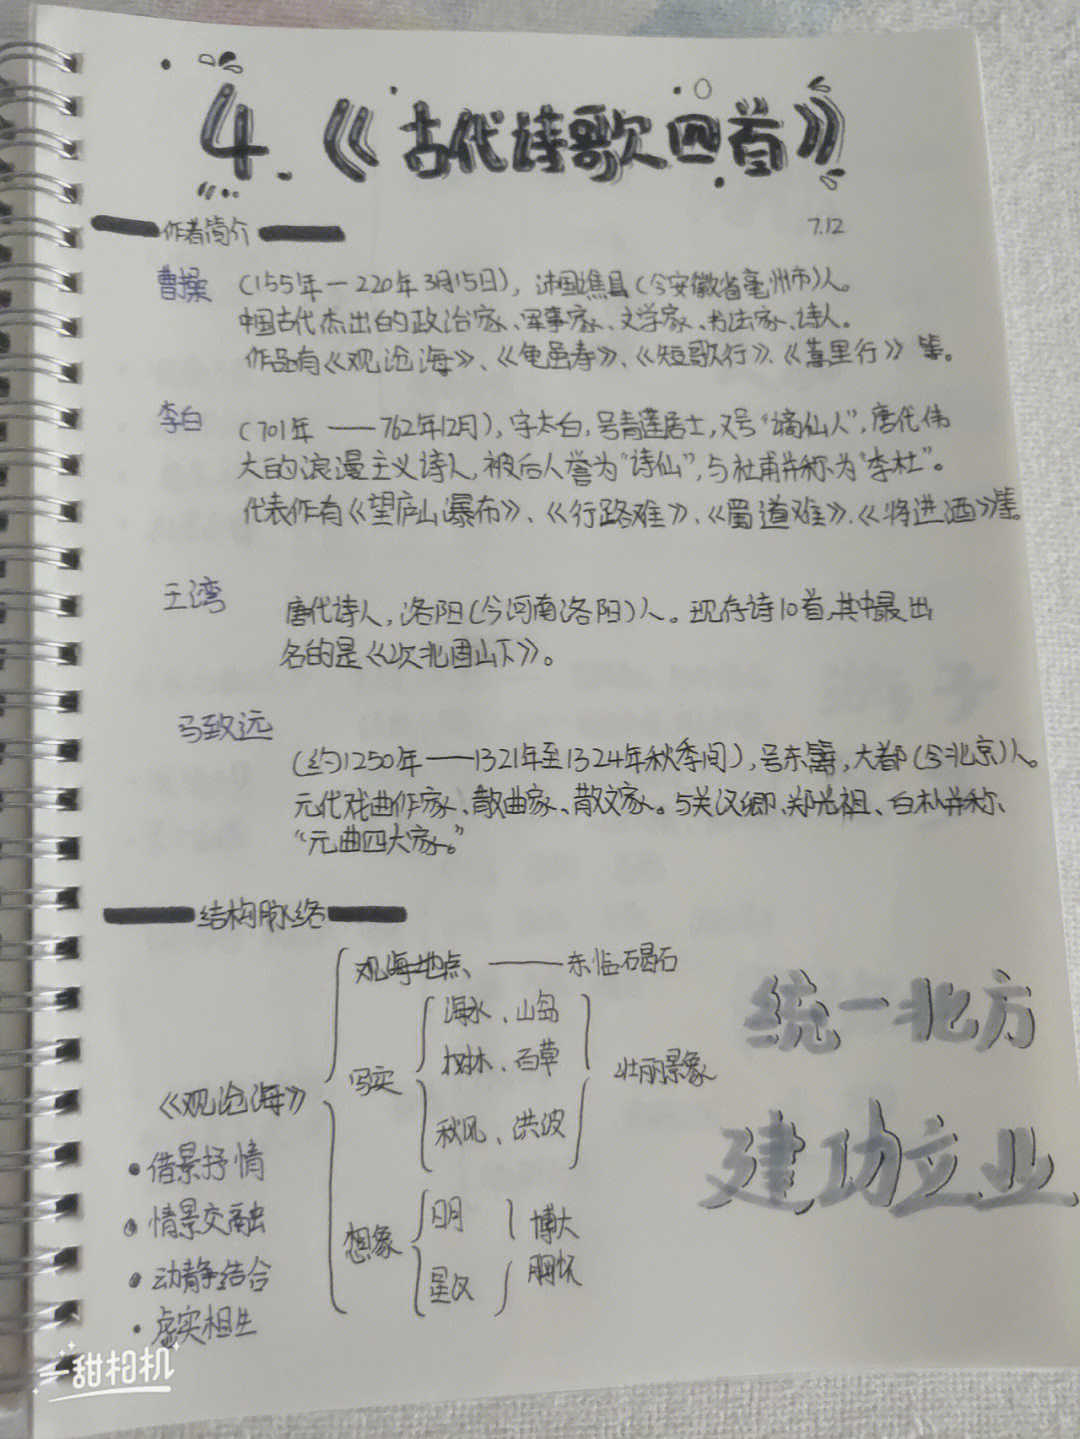 4.《古代诗歌四首》
7.12
作者简介
曹操 (155年—220年3月15日), 沛国谯县(今安徽省亳州市)人。
中国古代杰出的政治家、军事家、文学家、书法家、诗人。
作品有《观沧海》、《龟虽寿》、《短歌行》、《蒿里行》等。
李白 (701年——762年12月), 字太白, 号青莲居士, 又号“谪仙人”, 唐代伟
大的浪漫主义诗人, 被后人誉为“诗仙”, 与杜甫并称为“李杜”。
代表作有《望庐山瀑布》、《行路难》、《蜀道难》、《将进酒》等。
王湾 唐代诗人, 洛阳(今河南洛阳)人。现存诗10首,其中最出
名的是《次北固山下》。
马致远
(约1250年——1321年至1324年秋季间), 号东篱, 大都(今北京)人。
元代戏曲作家、散曲家、散文家。与关汉卿、郑光祖、白朴并称、
“元曲四大家。”
结构脉络
观海地点 —— 东临碣石
海水、山岛
树林、百草
写实
壮丽景象
秋风、洪波
《观沧海》
统一北方
建功立业
想象
日月
星汉
博大
胸怀
•借景抒情
•情景交融
•动静结合
•虚实相生
甜相机